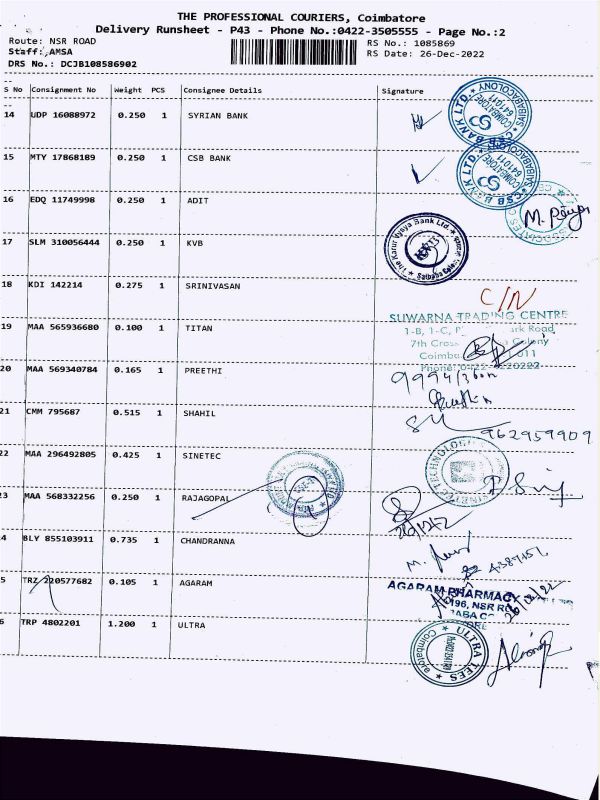 THE PROFESSIONAL COURIERS, Coimbatore
Delivery Runsheet - P43 - Phone No.:0422-3505555 - Page No.:2
Route: NSR ROAD
RS No.: 1085869
Staff: AMSA
RS Date: 26-Dec-2022
DRS No.: DCJB108586902
S No Consignment No Weight PCS Consignee Details Signature
14 UDP 16088972 0.250 1 SYRIAN BANK
CSB BANK LTD. SAIBABACOLONY
COIMBATORE
641011
15 MTY 17868189 0.250 1 CSB BANK
CSB BANK LTD. SAIBABACOLONY
COIMBATORE
641011
16 EDQ 11749998 0.250 1 ADIT
17 SLM 310056444 0.250 1 KVB
The Karur Vysya Bank Ltd.
18 KDI 142214 0.275 1 SRINIVASAN
C/N
SUWARNA TRADING CENTRE
19 MAA 565936680 0.100 1 TITAN
1-B, 1-C, Road
7th Cross Colony
Coimba 011
Phone: 0422
20 MAA 569340784 0.165 1 PREETHI
21 CMM 795687 0.515 1 SHAHIL
962959909
22 MAA 296492805 0.425 1 SINETEC
23 MAA 568332256 0.250 1 RAJAGOPAL
4 BLY 855103911 0.735 1 CHANDRANNA
5 TRZ 220577682 0.105 1 AGARAM
AGARAM PHARMACY
196, NSR RO
6 TRP 4802201 1.200 1 ULTRA
ULTRA TEES
Coimbatore